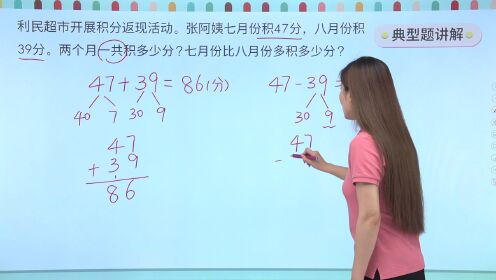 利民超市开展积分返现活动。张阿姨七月份积47分，八月份积
39分。两个月一共积多少分？七月份比八月份多积多少分？
典型题讲解
47+39=86(分)
40 7 30 9
47
+39
86
47-39=
30 9
47
-